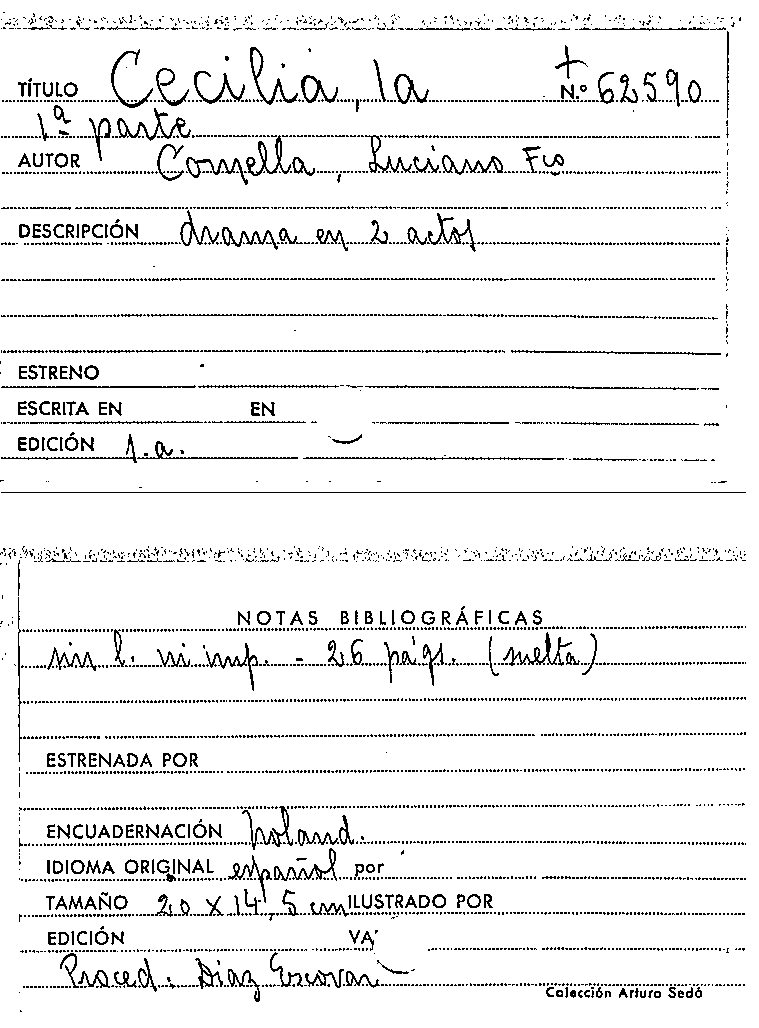 TÍTULO Cecilia, la N.º 62590
1ª parte
AUTOR Comella, Luciano Fco
DESCRIPCIÓN drama en 2 actos
ESTRENO
ESCRITA EN EN
EDICIÓN s.a.
NOTAS BIBLIOGRÁFICAS
sin l. ni imp. - 26 págs. (suelta)
ESTRENADA POR
ENCUADERNACIÓN holand.
IDIOMA ORIGINAL español por
TAMAÑO 20 x 14,5 cm ILUSTRADO POR
EDICIÓN VA
Proced: Diaz Escovar
Colección Arturo Sedó